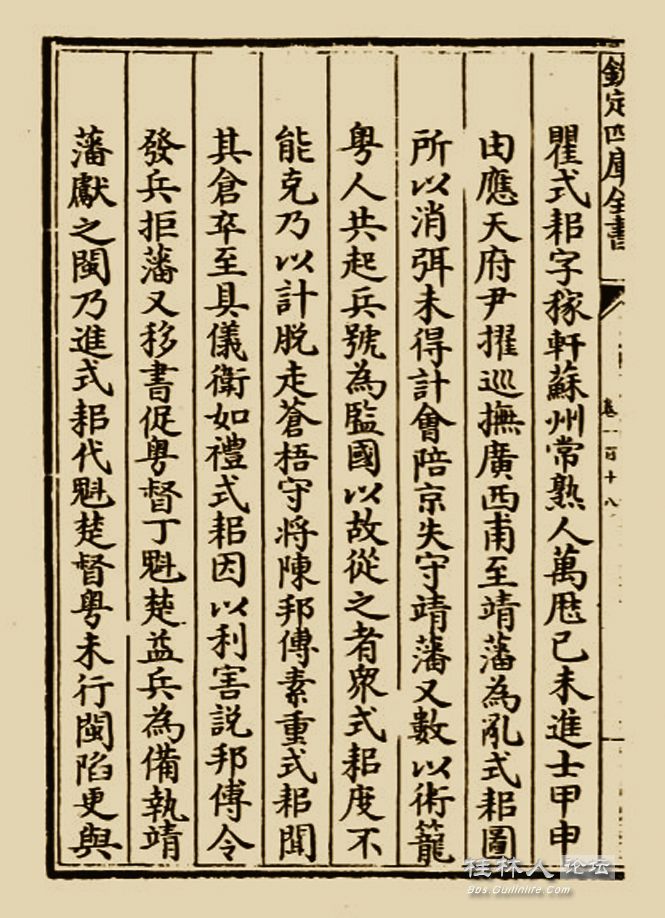 欽定四庫全書
卷一百十八
瞿式耜字稼軒蘇州常熟人萬厯已未進士甲申
由應天府尹擢巡撫廣西甫至靖藩為亂式耜圖
所以消弭未得計會陪京失守靖藩又數以術籠
粤人共起兵號為監國以故從之者衆式耜度不
能克乃以計脱走蒼梧守將陳邦傅素重式耜聞
其倉卒至具儀衛如禮式耜因以利害説邦傅令
發兵拒藩又移書促粤督丁魁楚益兵為備執靖
藩獻之閩乃進式耜代魁楚督粤未行閩陷更與
桂林人论坛
Bbs.Guilinlife.Com